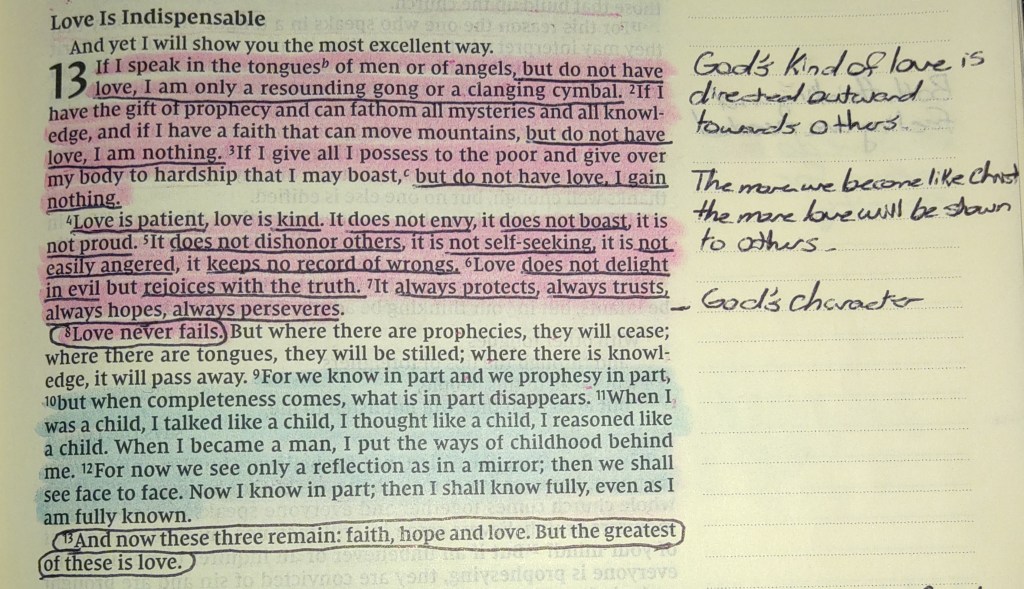 Love Is Indispensable
And yet I will show you the most excellent way.
13 If I speak in the tonguesᵇ of men or of angels, but do not have
love, I am only a resounding gong or a clanging cymbal. ²If I
have the gift of prophecy and can fathom all mysteries and all knowl-
edge, and if I have a faith that can move mountains, but do not have
love, I am nothing. ³If I give all I possess to the poor and give over
my body to hardship that I may boast,ᶜ but do not have love, I gain
nothing.
⁴Love is patient, love is kind. It does not envy, it does not boast, it is
not proud. ⁵It does not dishonor others, it is not self-seeking, it is not
easily angered, it keeps no record of wrongs. ⁶Love does not delight
in evil but rejoices with the truth. ⁷It always protects, always trusts,
always hopes, always perseveres.
⁸Love never fails. But where there are prophecies, they will cease;
where there are tongues, they will be stilled; where there is knowl-
edge, it will pass away. ⁹For we know in part and we prophesy in part,
¹⁰but when completeness comes, what is in part disappears. ¹¹When I
was a child, I talked like a child, I thought like a child, I reasoned like
a child. When I became a man, I put the ways of childhood behind
me. ¹²For now we see only a reflection as in a mirror; then we shall
see face to face. Now I know in part; then I shall know fully, even as I
am fully known.
¹³And now these three remain: faith, hope and love. But the greatest
of these is love.
God's Kind of love is
directed outward
towards others.
The more we become like Christ
the more love will be shown
to others.
- God's Character